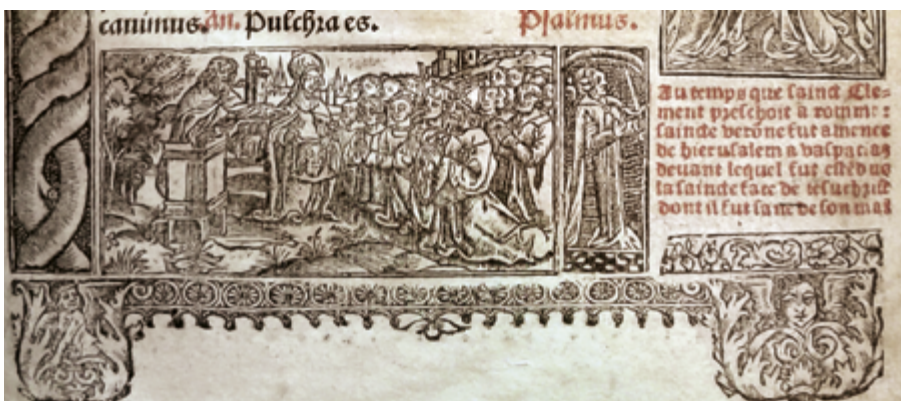 canimus. An. Pulchra es. Psalmus.
Au temps que sainct Cle-
ment preschoit a romme:
saincte verone fut amenee
de hierusalem a vaspacian
devant lequel fut
la saincte face de iesuchrist
dont il fut sane de son mal